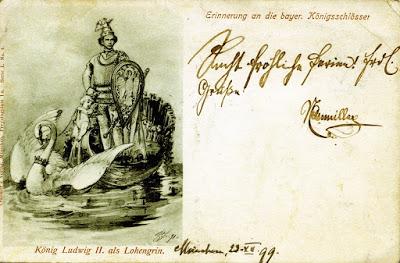 Erinnerung an die bayer. Königsschlösser
Recht fröhliche Ferien! Frdl.
Grüße!
König Ludwig II. als Lohengrin.
München, 23-VII 99.